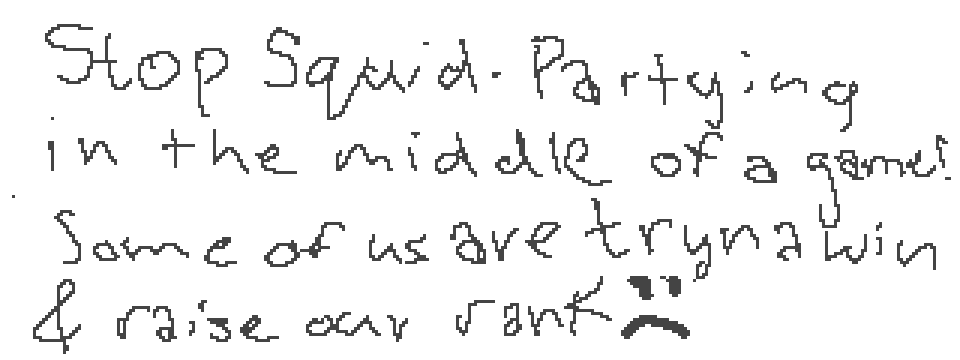 Stop Squid-Partying
in the middle of a game!
Some of us are tryna win
& raise our rank